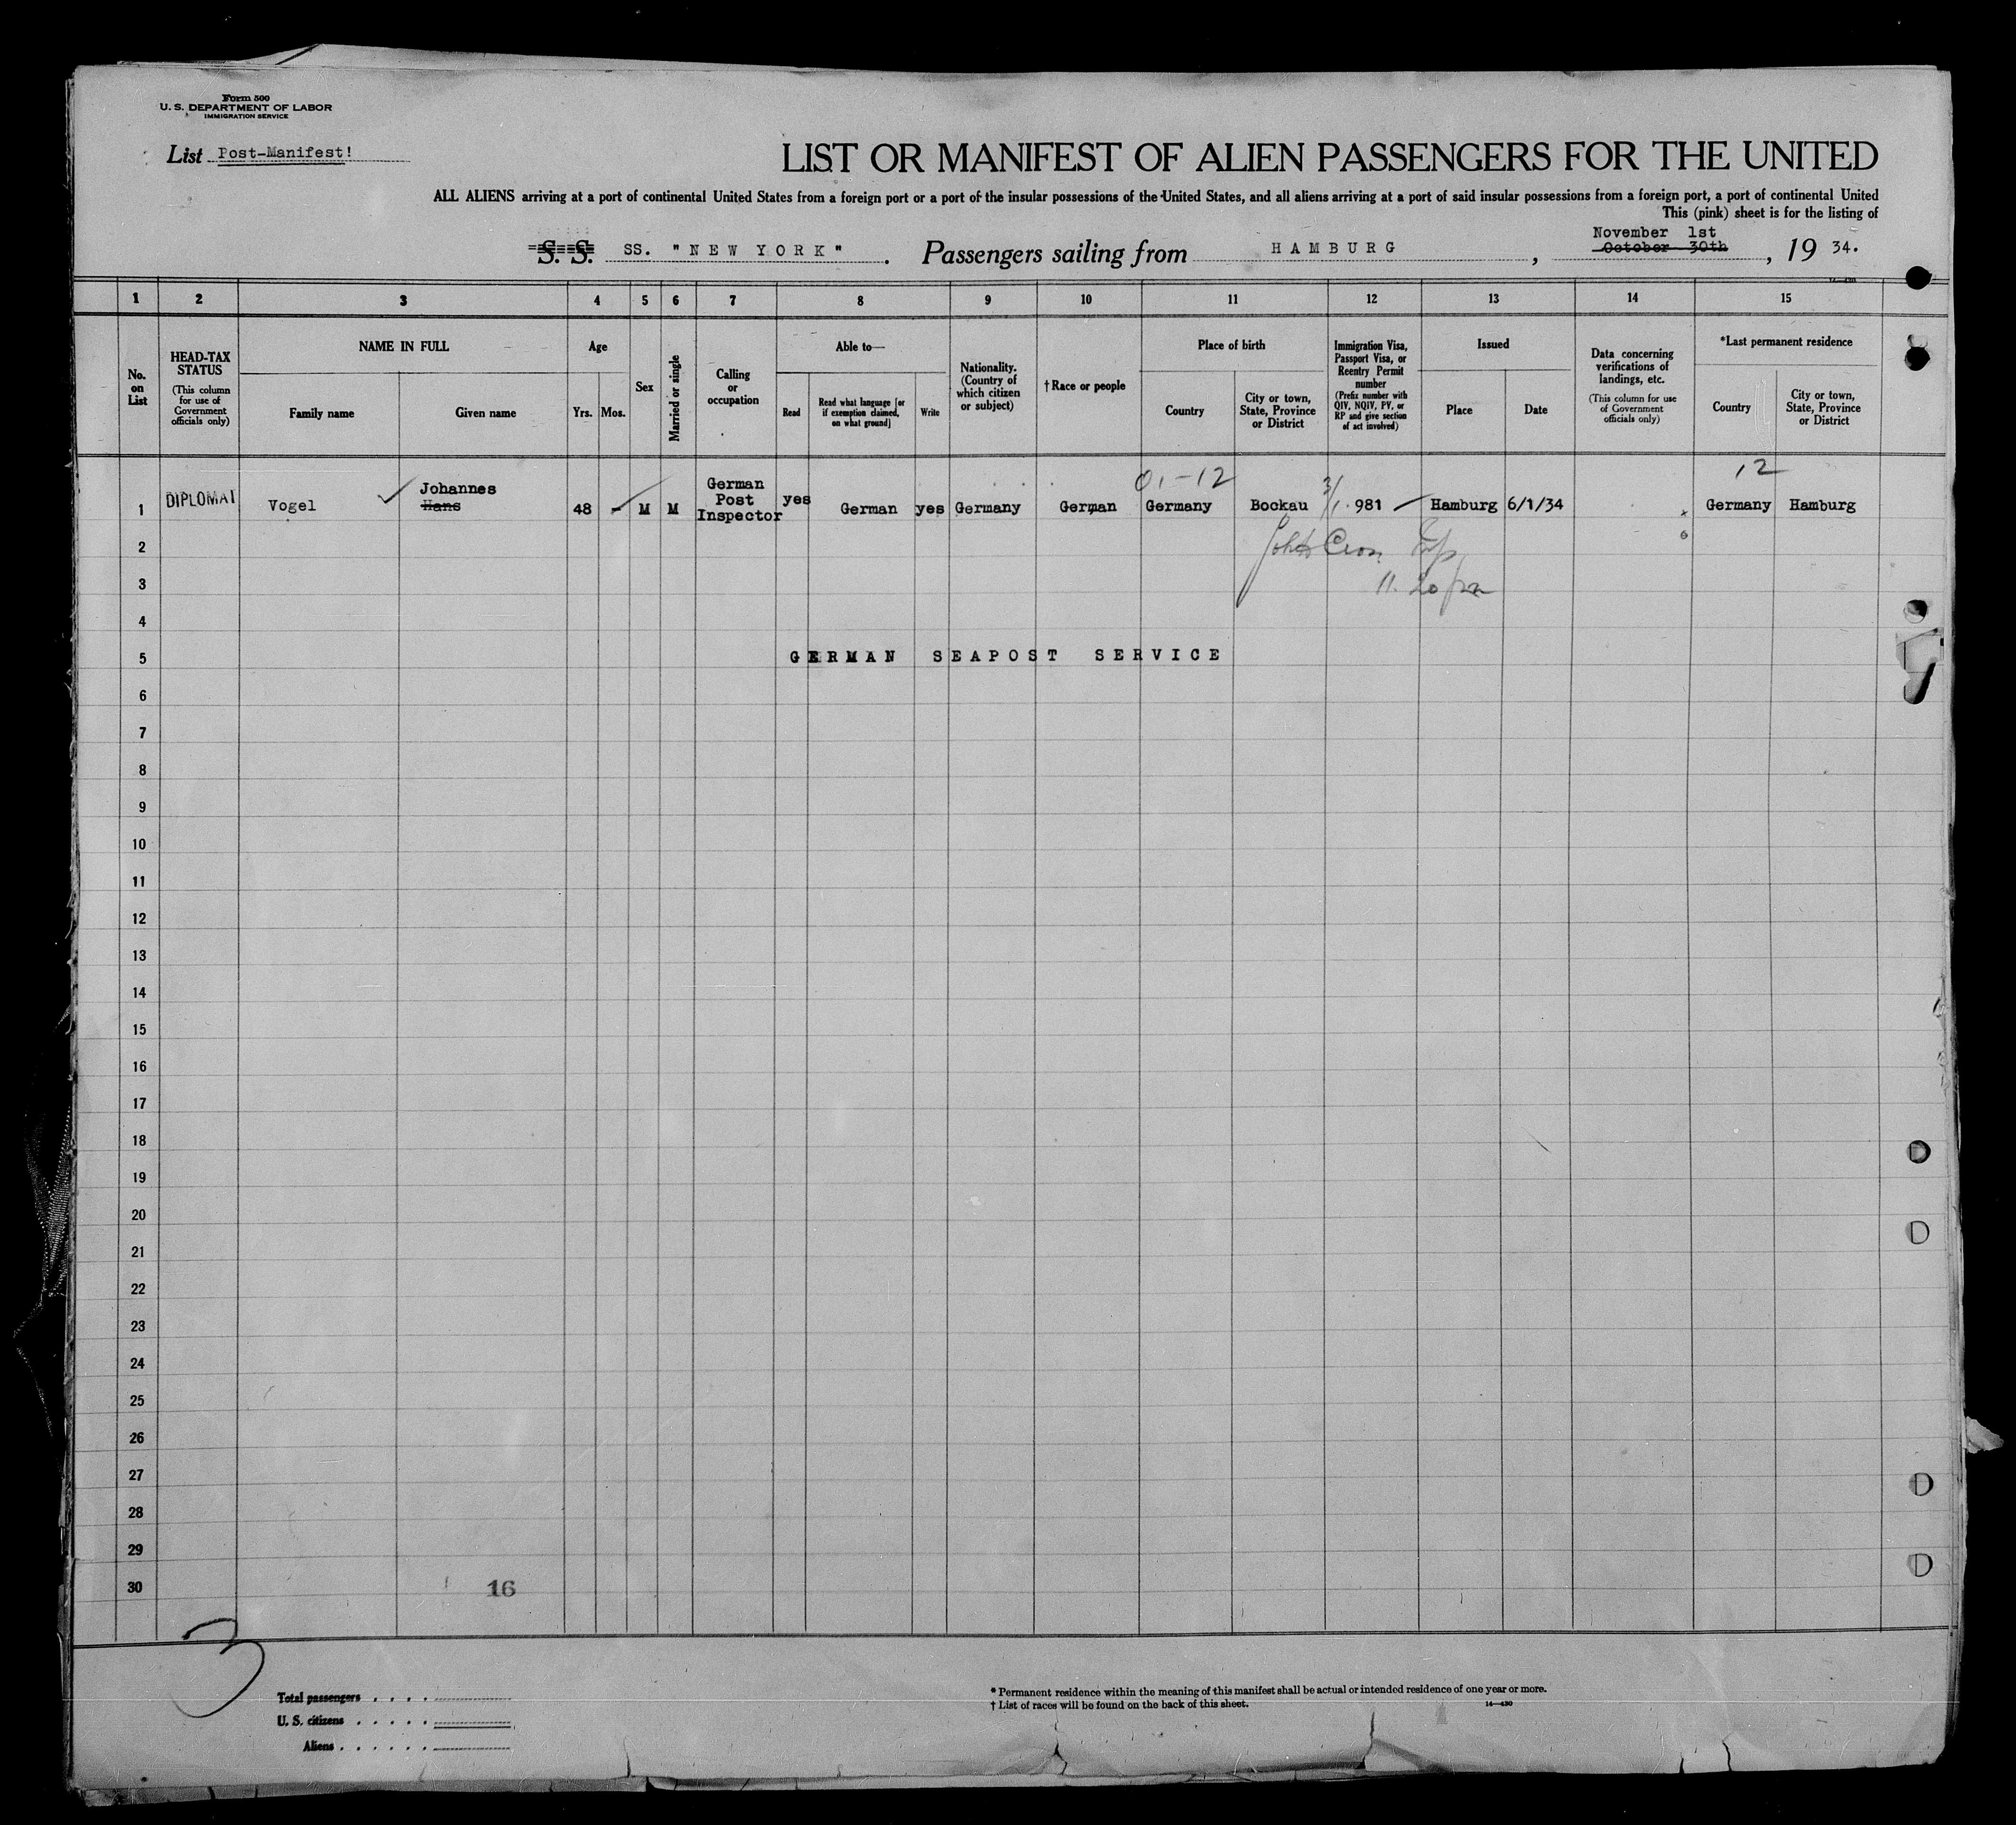 Form 500
U. S. DEPARTMENT OF LABOR
IMMIGRATION SERVICE
List Post-Manifest!
LIST OR MANIFEST OF ALIEN PASSENGERS FOR THE UNITED
ALL ALIENS arriving at a port of continental United States from a foreign port or a port of the insular possessions of the United States, and all aliens arriving at a port of said insular possessions from a foreign port, a port of continental United
This (pink) sheet is for the listing of
November 1st
S. S. SS. "NEW YORK". Passengers sailing from HAMBURG, October 30th, 19 34.
14—430
1 2 3 4 5 6 7 8 9 10 11 12 13 14 15
No. on List
HEAD-TAX STATUS
(This column for use of Government officials only)
NAME IN FULL
Family name
Given name
Age
Yrs.
Mos.
Sex
Married or single
Calling or occupation
Able to—
Read
Read what language [or if exemption claimed, on what ground]
Write
Nationality. (Country of which citizen or subject)
† Race or people
Place of birth
Country
City or town, State, Province or District
Immigration Visa, Passport Visa, or Reentry Permit number
(Prefix number with QIV, NQIV, PV, or RP and give section of act involved)
Issued
Place
Date
Data concerning verifications of landings, etc.
(This column for use of Government officials only)
*Last permanent residence
Country
City or town, State, Province or District
01-12
12
1 DIPLOMAT Vogel Johannes Hans 48 - M M German Post Inspector yes German yes Germany German Germany Bockau 3/1. 981 Hamburg 6/1/34 Germany Hamburg
x
6
2
3
11.20 pm
4
5 GERMAN SEAPOST SERVICE
6
7
8
9
10
11
12
13
14
15
16
17
18
19
20
21
22
23
24
25
26
27
28
29
30
16
3
Total passengers
U. S. citizens
Aliens
* Permanent residence within the meaning of this manifest shall be actual or intended residence of one year or more.
† List of races will be found on the back of this sheet.
14—430